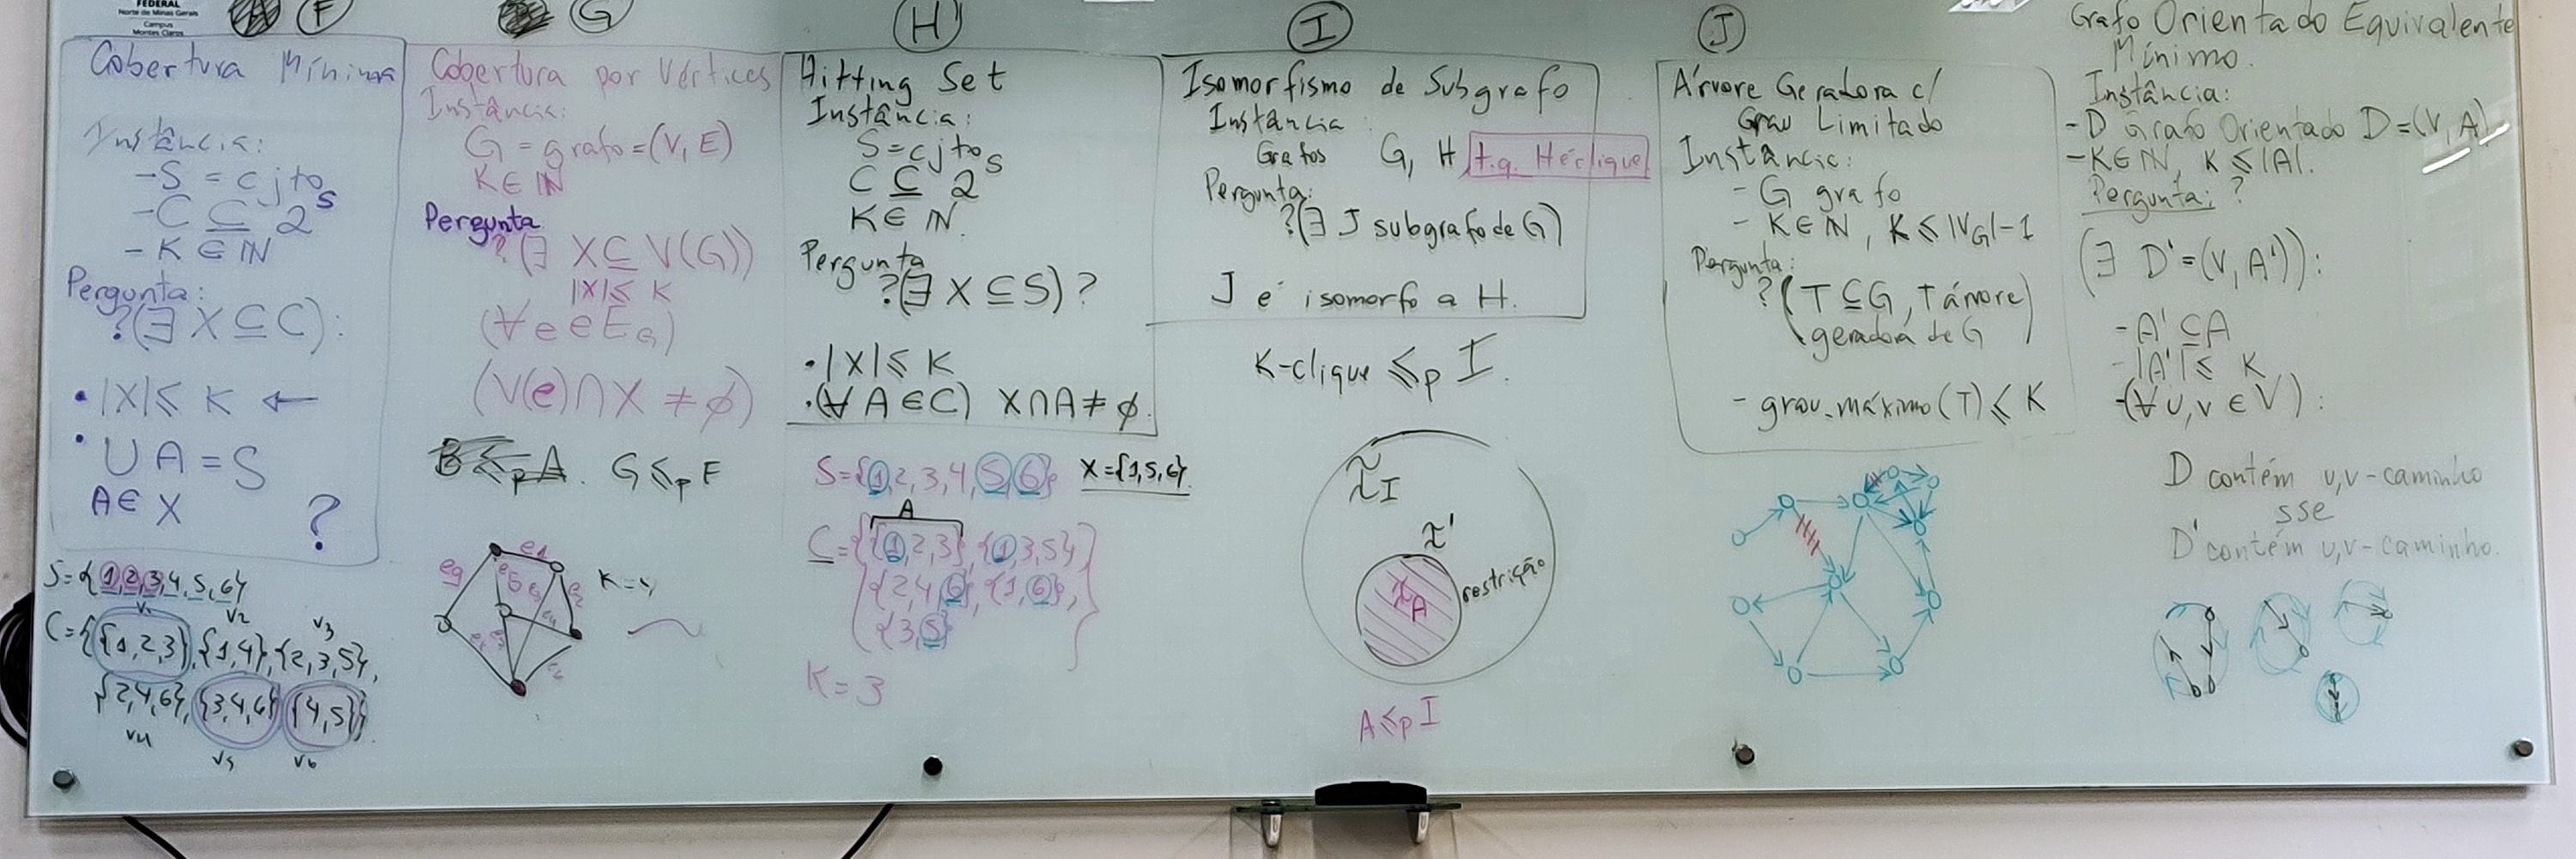 FEDERAL
Norte de Minas Gerais
Campus
Montes Claros
F
Cobertura Mínima
Instância:
- S = cjto
- C ⊆ 2^S
- K ∈ ℕ
Pergunta:
?(∃ X ⊆ C):
• |X| ≤ K ←
• ∪ A = S
A ∈ X ?
S={1,2,3,4,5,6}
v1 v2 v3
C={{1,2,3},{1,4},{2,3,5},
{2,4,6},{3,4,6},{4,5}}
v4 v5 v6
G
Cobertura por Vértices
Instância:
G = grafo = (V, E)
K ∈ ℕ
Pergunta
?(∃ X ⊆ V(G))
|X| ≤ K
(∀ e ∈ E_G)
(V(e) ∩ X ≠ ∅)
B ≤p A. G ≤p F
e9 e1
K=4
H
Hitting Set
Instância:
S = cjto
C ⊆ 2^S
K ∈ ℕ.
Pergunta
?(∃ X ⊆ S)?
• |X| ≤ K
• (∀ A ∈ C) X ∩ A ≠ ∅.
S={1,2,3,4,5,6} X={1,5,6}
A
C={{1,2,3},{1,3,5},
{2,4,6},{1,6},
{3,5}}
K=3
I
Isomorfismo de Subgrafo
Instância
Grafos G, H t.q. H é clique
Pergunta:
?(∃ J subgrafo de G)
J é isomorfo a H.
K-clique ≤p I.
I
restrição
A
A ≤p I
J
Árvore Geradora c/
Grau Limitado
Instância:
- G grafo
- K ∈ ℕ, K ≤ |V_G|-1
Pergunta:
?(T ⊆ G, T árvore
geradora de G)
- grau_máximo(T) ≤ K
Grafo Orientado Equivalente
Mínimo.
Instância:
- D Grafo Orientado D=(V, A)
- K ∈ ℕ, K ≤ |A|.
Pergunta: ?
(∃ D'=(V, A')):
- A' ⊆ A
- |A'| ≤ K
- (∀ u,v ∈ V):
D contém u,v-caminho
sse
D' contém u,v-caminho.